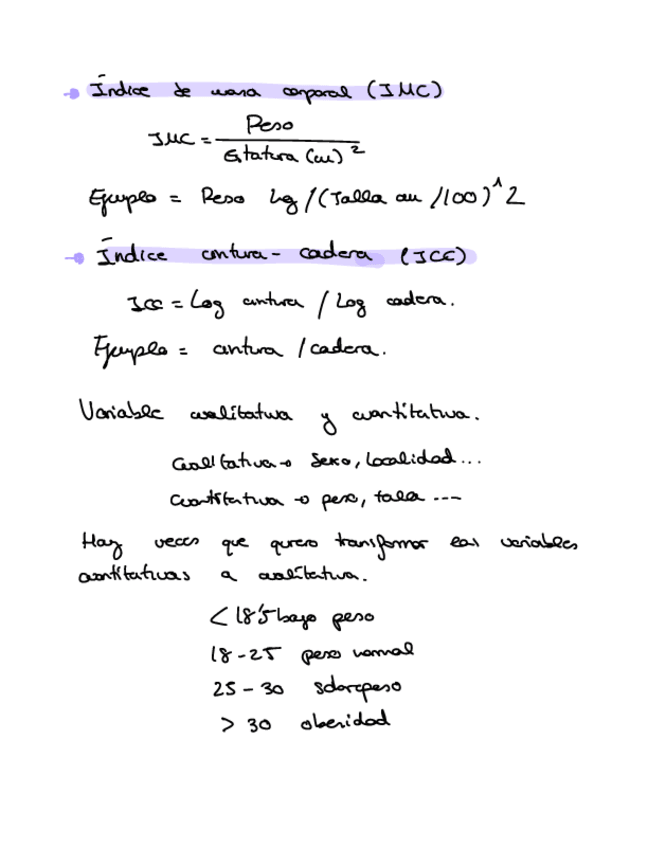 → Índice de masa corporal (IMC)
IMC = Peso / Estatura (m)²
Ejemplo = Peso kg / (Talla cm /100)^2
→ Índice cintura - cadera (ICC)
ICC = Log cintura / Log cadera.
Ejemplo = cintura / cadera.
Variable cualitativa y cuantitativa.
Cualitativa → Sexo, localidad...
Cuantitativa → peso, talla ---
Hay veces que quiero transformar las variables
cuantitativas a cualitativa.
< 18'5 bajo peso
18 - 25 peso normal
25 - 30 sobrepeso
> 30 obesidad